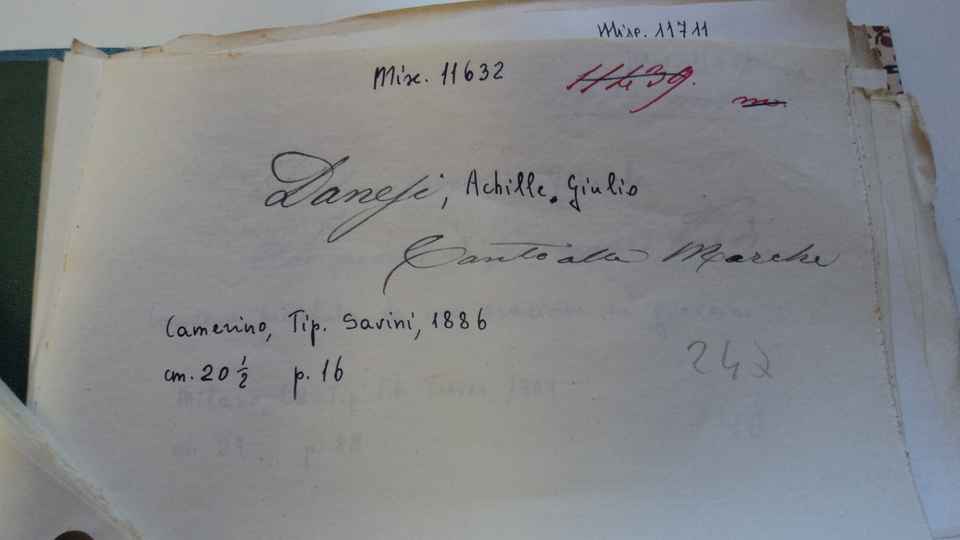 Misc. 11711
Misc. 11632
11439.
Danesi, Achille. Giulio
Canto alle Marche
Camerino, Tip. Savini, 1886
cm. 20 1/2 p. 16
247